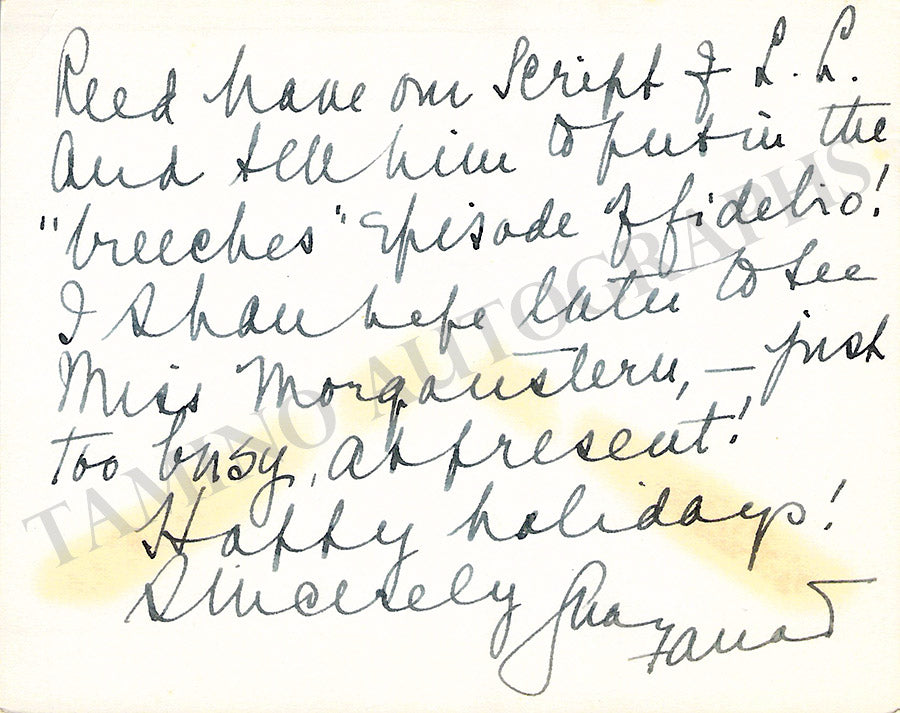 Reed have our Script of L. L.
And tell him to put in the
"breeches" Episode of fidelio!
I shall hope later to see
Miss Morganstern, — just
too busy, at present!
Happy holidays!
Sincerely
Farrar
TAMINO AUTOGRAPHS